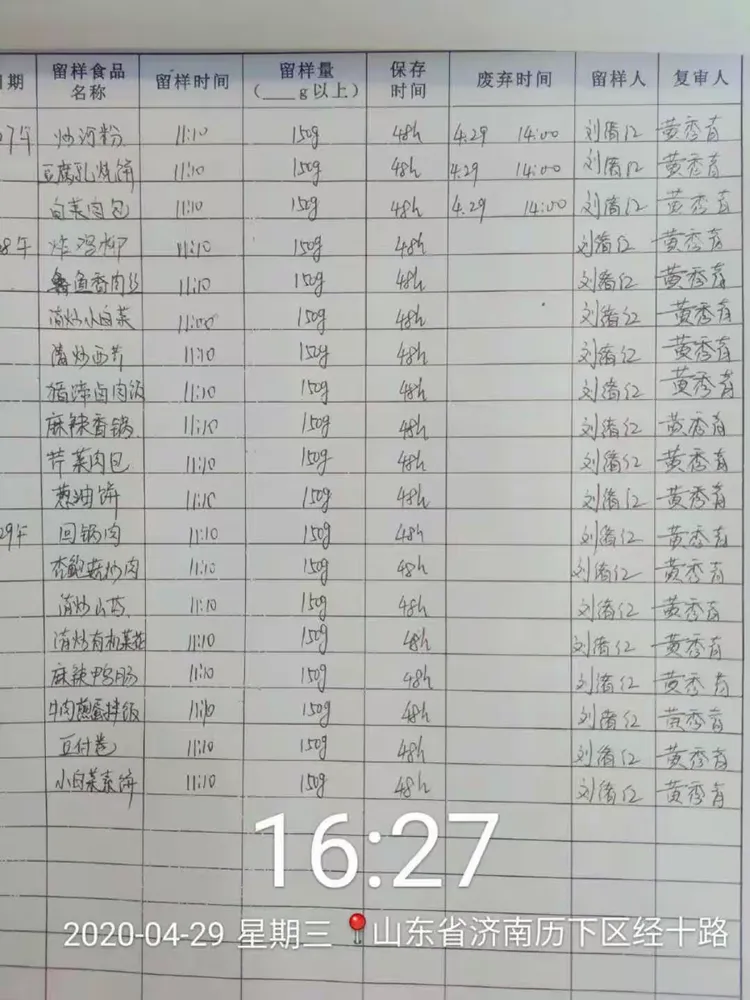 日期 留样食品名称 留样时间 留样量（___g以上） 保存时间 废弃时间 留样人 复审人
27午 炒河粉 11:10 150g 48h 4.29 14:00 黄秀育
豆腐乳烧饼 11:10 150g 48h 4.29 14:00 黄秀育
白菜肉包 11:10 150g 48h 4.29 14:00 黄秀育
28午 炸鸡柳 11:10 150g 48h 黄秀育
鱼香肉丝 11:10 150g 48h 黄秀育
清炒小白菜 11:00 150g 48h 黄秀育
清炒西芹 11:10 150g 48h 黄秀育
卤肉饭 11:10 150g 48h 黄秀育
麻辣香锅 11:10 150g 48h 黄秀育
芹菜肉包 11:10 150g 48h 黄秀育
葱油饼 11:10 150g 48h 黄秀育
29午 回锅肉 11:10 150g 48h 黄秀育
杏鲍菇炒肉 11:10 150g 48h 黄秀育
清炒山药 11:10 150g 48h 黄秀育
清炒有机菜花 11:10 150g 48h 黄秀育
麻辣鸭肠 11:10 150g 48h 黄秀育
牛肉煎蛋拌饭 11:10 150g 48h 黄秀育
豆付卷 11:10 150g 48h 黄秀育
小白菜素饼 11:10 150g 48h 黄秀育
16:27
2020-04-29 星期三 山东省济南历下区经十路